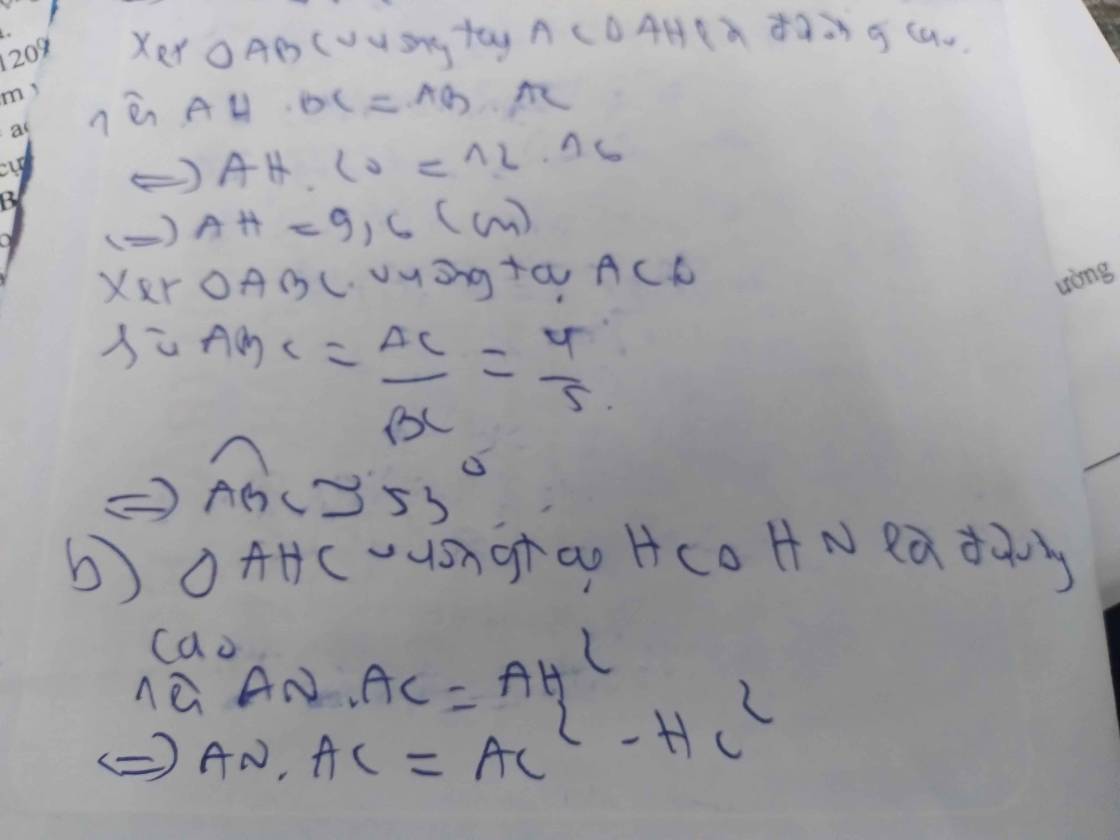 1209
m
cự
B
Xét ΔABC vuông tại A có AH là đường cao.
nên AH . BC = AB . AC
<=> AH . 20 = 12 . 16
<=> AH = 9,6 (cm)
Xét ΔABC vuông tại A có
sin ABC = AC/BC = 4/5.
<=> ABC ≅ 53°
b) ΔAHC vuông tại H có HN là đường
cao
nên AN . AC = AH²
<=> AN . AC = AC² - HC²
ường